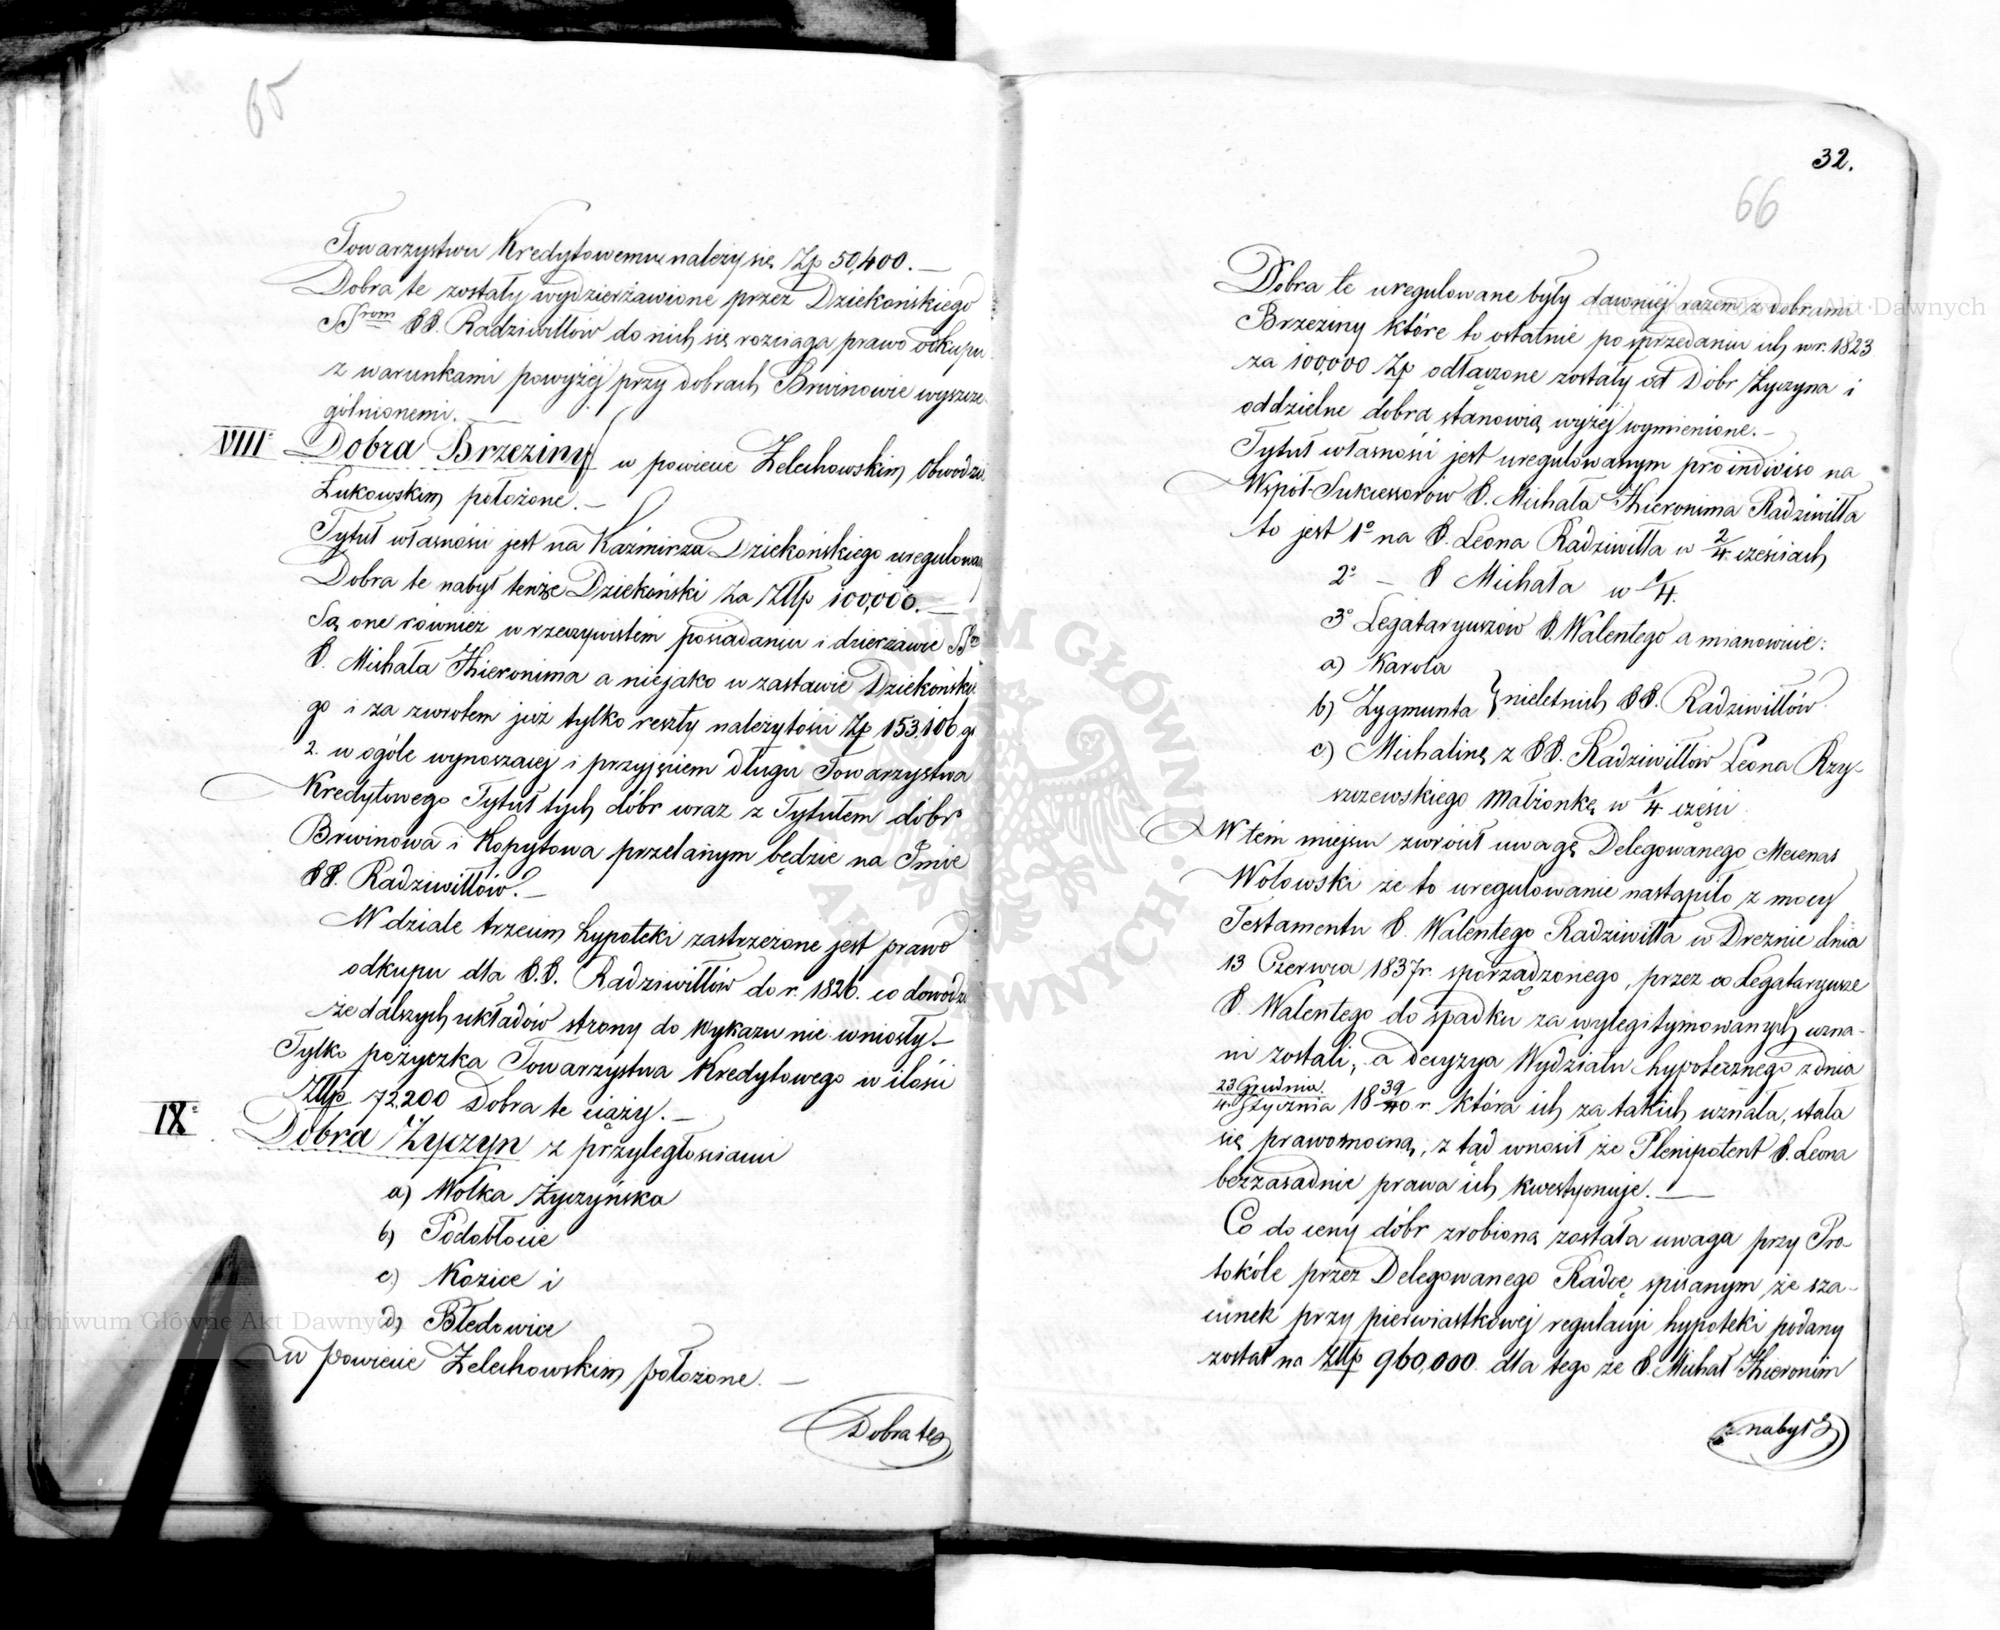 65
Towarzystwu Kredytowemu należy się Złp 50,400. —
Dobra te zostały wydzierżawione przez Dziekońskiego
SSrom XX. Radziwiłłów do nich się rozciąga prawo odkupu
z warunkami powyżej przy dobrach Brwinowie wyszcze-
gólnionemi. —
VIII° Dobra Brzeziny w powiecie Żelechowskim, Obwodzie
Łukowskim położone. —
Tytuł własności jest na Kaźmirza Dziekońskiego uregulowa
Dobra te nabył tenże Dziekoński za Złp 100,000. —
Są one również w rzeczywistém posiadaniu i dzierżawie
X. Michała Hieronima a niejako w zastawie Dziekońskie
go i za zwrotem już tylko reszty należytości Złp 153,106 g
2. w ogóle wynoszącej i przyjęciem długu Towarzystwa
Kredytowego Tytuł tych dóbr wraz z Tytułem dóbr
Brwinowa i Kopytowa przelanym będzie na Imie
XX. Radziwiłłów. —
W dziale trzecim hypoteki zastrzeżone jest prawo
odkupu dla X.X. Radziwiłłów do r. 1826. co dowodzi
że dalszych układów strony do Wykazu nie wniosły. —
Tylko pożyczka Towarzystwa Kredytowego w ilości
Złp. 72,200 Dobra te ciąży. —
IX° Dobra Życzyn z przyległościami
a) Wolka Życzyńska
b) Podobłocie
c) Kozice i
d) Błędowice
w powiecie Żelechowskim położone. —
Dobra te
32.
66
Dobra te uregulowane były dawniej razem z dobrami
Brzeziny które to ostatnie po sprzedaniu ich w r. 1823
za 100,000 Złp odłączone zostały od Dóbr Życzyna i
oddzielne dobra stanowią wyżej wymienione. —
Tytuł własności jest uregulowanym pro indiviso na
Współ-Sukcessorów X. Michała Hieronima Radziwiłła
to jest 1° na X. Leona Radziwiłła w 2/4 częściach
2° — X Michała w 1/4.
3° Legataryuszów X. Walentego a mianowicie:
a) Karola
b) Zygmunta } nieletnich XX. Radziwiłłów
c) Michalinę z XX. Radziwiłłów Leona Rzy-
szczewskiego Małżonkę w 1/4 części
W tém miejscu zwrócił uwagę Delegowanego Mecenas
Wołowski że to uregulowanie nastąpiło z mocy
Testamentu X. Walentego Radziwiłła w Dreznie dnia
13 Czerwca 1837r. sporządzonego, przez co Legataryusze
X. Walentego do spadku za wylegitymowanych uzna-
ni zostali, a decyzya Wydziału hypotecznego z dnia
23 Grudnia 39
4. Stycznia 1840 r. która ich za takich uznała, stała
się prawomocną, z tąd wnosił że Plenipotent X. Leona
bezzasadnie prawa ich kwestyonuje. —
Co do ceny dóbr zrobioną została uwaga przy Pro-
tokóle przez Delegowanego Radcę spisanym że sza-
cunek przy pierwiastkowej regulacyi hypoteki podany
został na Złp 960,000. dla tego że X. Michał Hieronim
nabył
Archiwum Główne Akt Dawnych
Archiwum Główne Akt Dawnych
ARCHIWUM GŁÓWNE AKT DAWNYCH